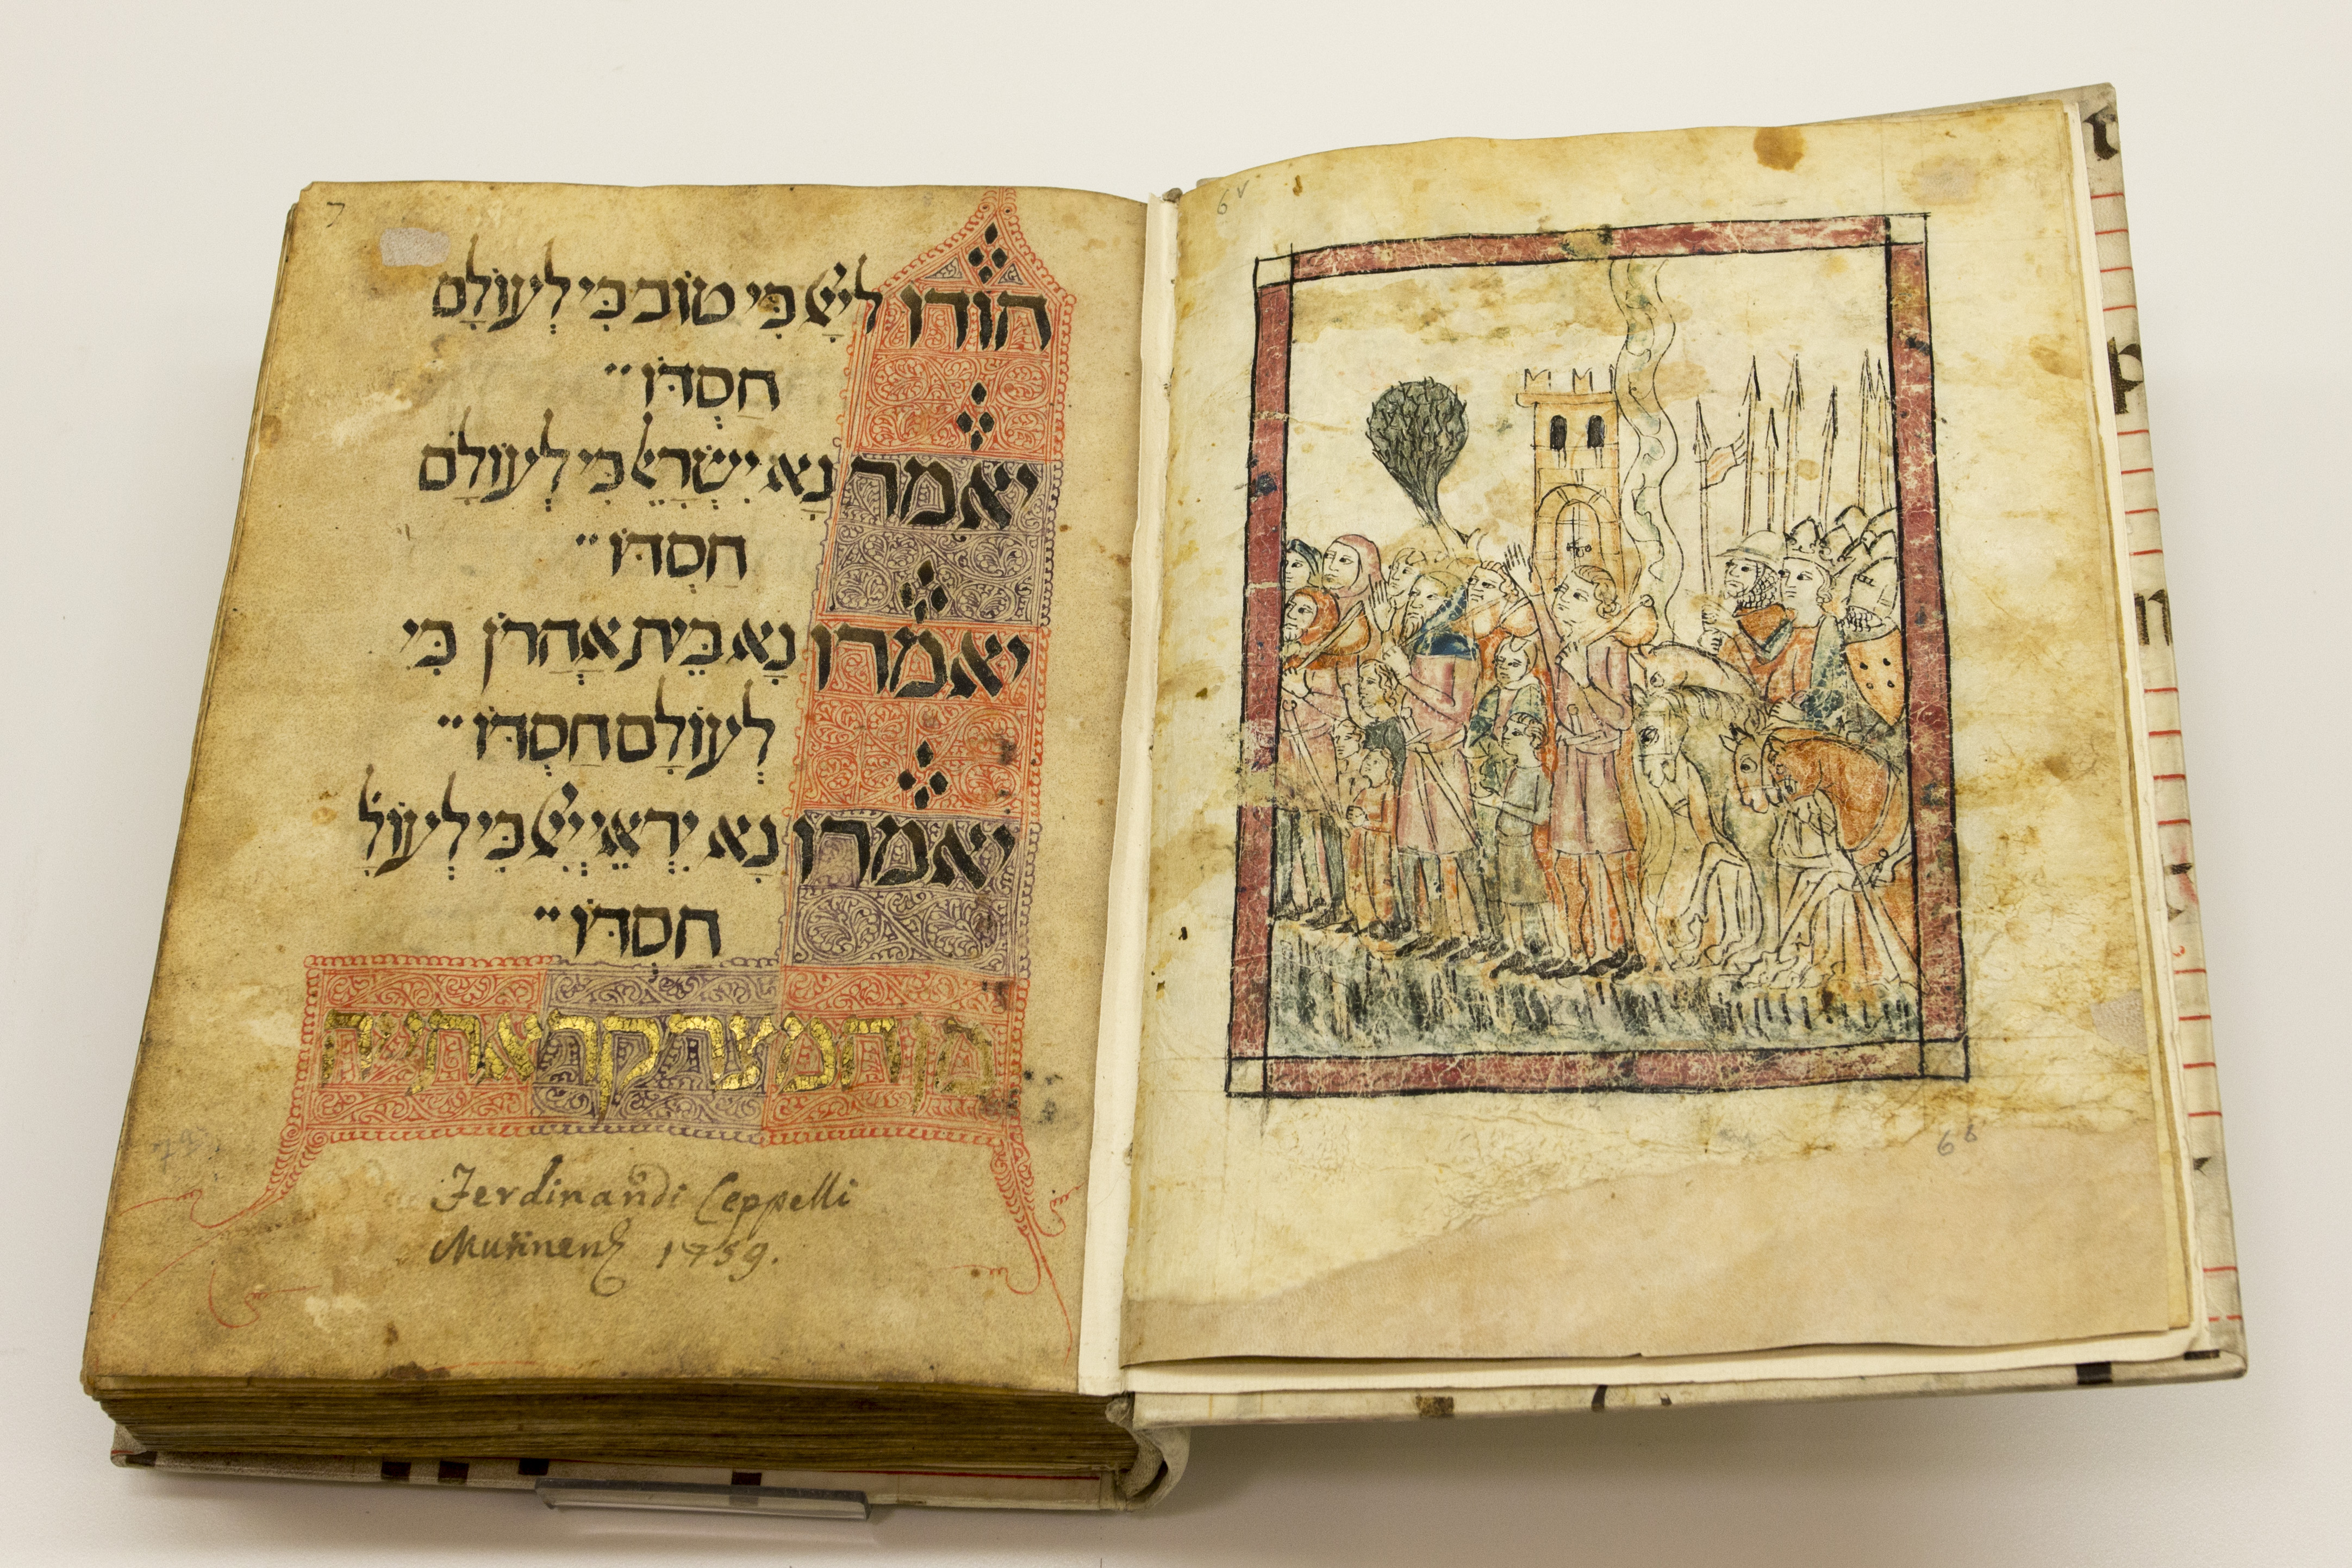 7
הוֹדוּ לַיְיָ כִּי טוֹב כִּי לְעוֹלָם
חַסְדּוֹ׃
יֹאמַר נָא יִשְׂרָאֵל כִּי לְעוֹלָם
חַסְדּוֹ׃
יֹאמְרוּ נָא בֵית אַהֲרֹן כִּי
לְעוֹלָם חַסְדּוֹ׃
יֹאמְרוּ נָא יִרְאֵי יְיָ כִּי לְעוֹלָ
חַסְדּוֹ׃
מן המצר קראתי יה
Ferdinandi Ceppelli
1759.
6v